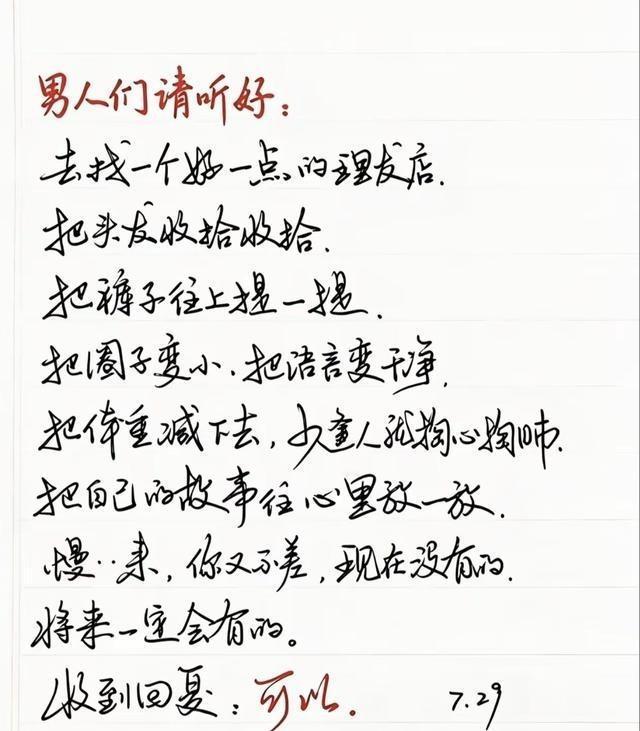 男人们请听好：
去找一个好一点的理发店.
把头发收拾收拾.
把裤子往上提一提.
把圈子变小.把语言变干净.
把体重减下去,少逢人就掏心掏肺.
把自己的故事往心里放一放.
慢··来,你又不差,现在没有的.
将来一定会有的。
收到回复：可以. 7.29